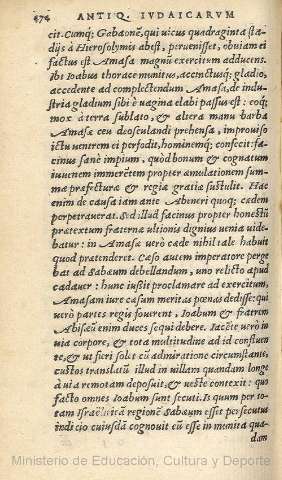 474 ANTIQ. IVDAICARVM
cit. Cumq; Gabaonē, qui vicus quadraginta sta-
dijs à Hierosolymis abest, peruenisset, obuiam ei
factus est Amasa magnū exercitum adducens.
Ibi Ioabus thorace munitus, accinctusq; gladio,
accedente ad complectendum Amasa, de indu-
stria gladium sibi è uagina elabi passus est: eoq;
mox à terra sublato, & altera manu barba
Amasæ ceu deosculandi prehensa, improuiso
ictu uentrem ei perfodit, hominemq; confecit: fa-
cinus sanè impium, quòd bonum & cognatum
iuuenem immerētem propter æmulationem sum-
mæ præfecturæ & regiæ gratiæ sustulit. Hac
enim de causa iam ante Abeneri quoq; cædem
perpetrauerat. Sed illud facinus propter honestū
prætextum fraternæ ultionis dignius uenia uide-
batur: in Amasæ verò cæde nihil tale habuit
quod prætenderet. Cæso autem imperatore perge
bat ad Sabæum debellandum, uno relicto apud
cadauer: hunc iussit proclamare ad exercitum,
Amasam iure cæsum meritas pœnas dedisse: qui
verò partes regis fouerent, Ioabum & fratrem
Abisæū enim duces sequi debere. Iacēte verò in
uia corpore, & tota multitudine ad id confluen
te, & ut fieri solet cū admiratione circumstante,
custos translatū illud in villam quandam longe
à via remotam deposuit, & ueste contexit: quo
facto omnes Ioabum sunt secuti. Is quum per to-
tam Israëliticā regionē Sabæum esset persecutus
indicio cuiusdā cognouit eū esse in munita qua-
dam
Ministerio de Educación, Cultura y Deporte